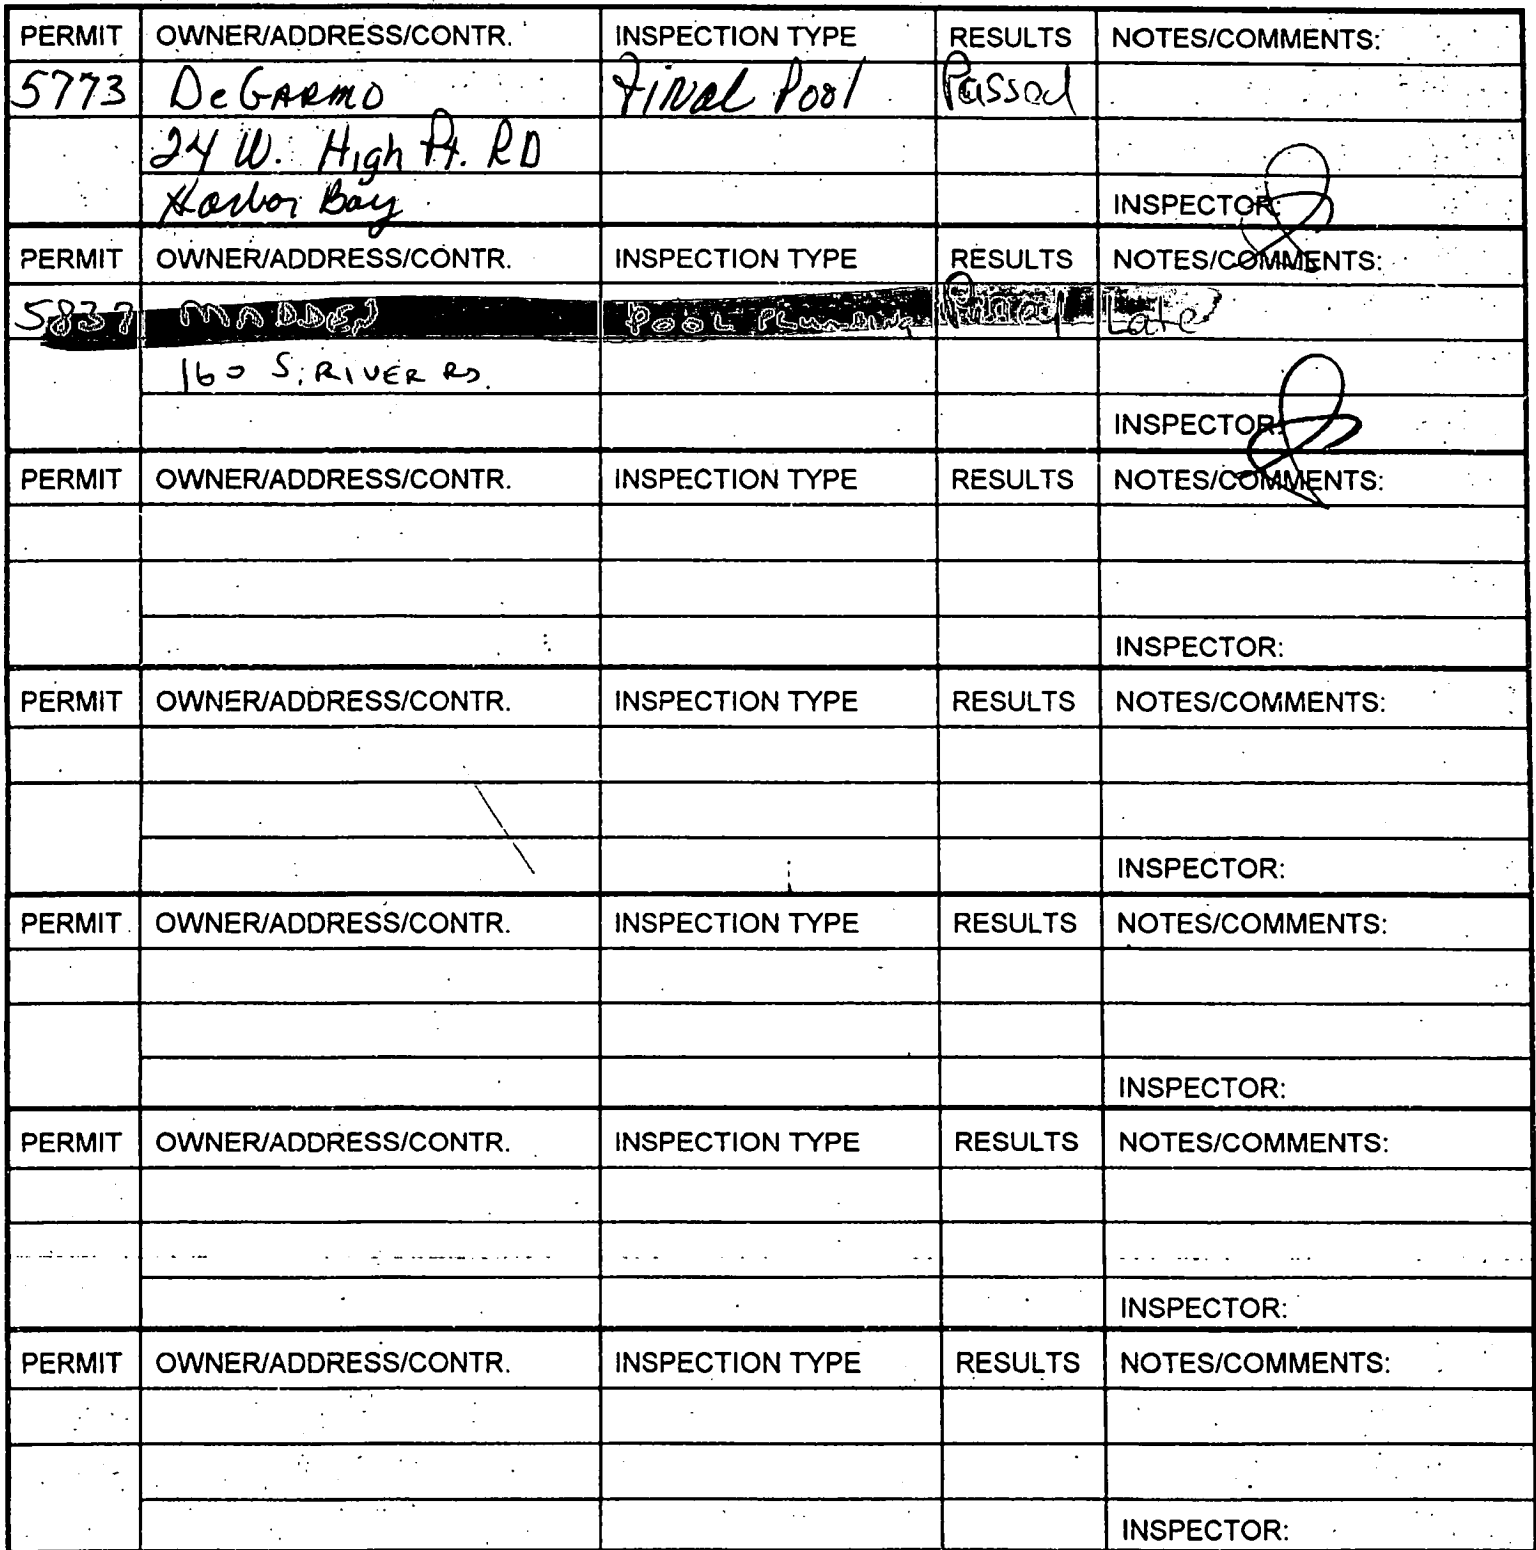 PERMIT OWNER/ADDRESS/CONTR. INSPECTION TYPE RESULTS NOTES/COMMENTS:
5773 DeGARMO Final Pool Passed
24 W. High Pt. RD
Harbor Bay INSPECTOR:
PERMIT OWNER/ADDRESS/CONTR. INSPECTION TYPE RESULTS NOTES/COMMENTS:
5837 MADDEN POOL PLUMBING Late
160 S. RIVER RD.
INSPECTOR:
PERMIT OWNER/ADDRESS/CONTR. INSPECTION TYPE RESULTS NOTES/COMMENTS:
INSPECTOR:
PERMIT OWNER/ADDRESS/CONTR. INSPECTION TYPE RESULTS NOTES/COMMENTS:
INSPECTOR:
PERMIT OWNER/ADDRESS/CONTR. INSPECTION TYPE RESULTS NOTES/COMMENTS:
INSPECTOR:
PERMIT OWNER/ADDRESS/CONTR. INSPECTION TYPE RESULTS NOTES/COMMENTS:
INSPECTOR:
PERMIT OWNER/ADDRESS/CONTR. INSPECTION TYPE RESULTS NOTES/COMMENTS:
INSPECTOR: